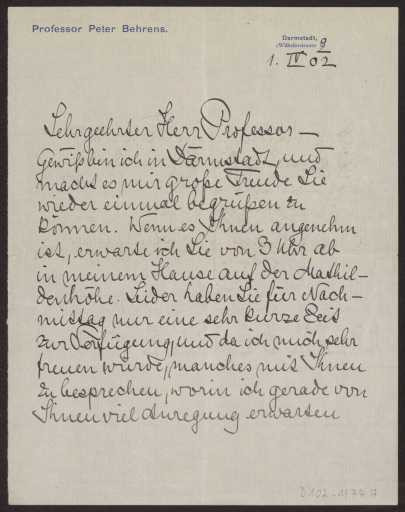 Professor Peter Behrens.
Darmstadt,
1. IV 02
Sehrgeehrter Herr Professor —
Gewiß bin ich in Darmstadt, und
macht es mir große Freude Sie
wieder einmal begrüßen zu
können. Wenn es Ihnen angenehm
ist, erwarte ich Sie von 3 Uhr ab
in meinem Hause auf der Mathil-
denhöhe. Lider haben Sie für Nach-
mittag nur eine sehr kurze Zeit
zur Verfügung, und da ich mich sehr
freuen würde, manches mit Ihnen
zu besprechen, worin ich gerade von
Ihnen viel Anregung erwarten